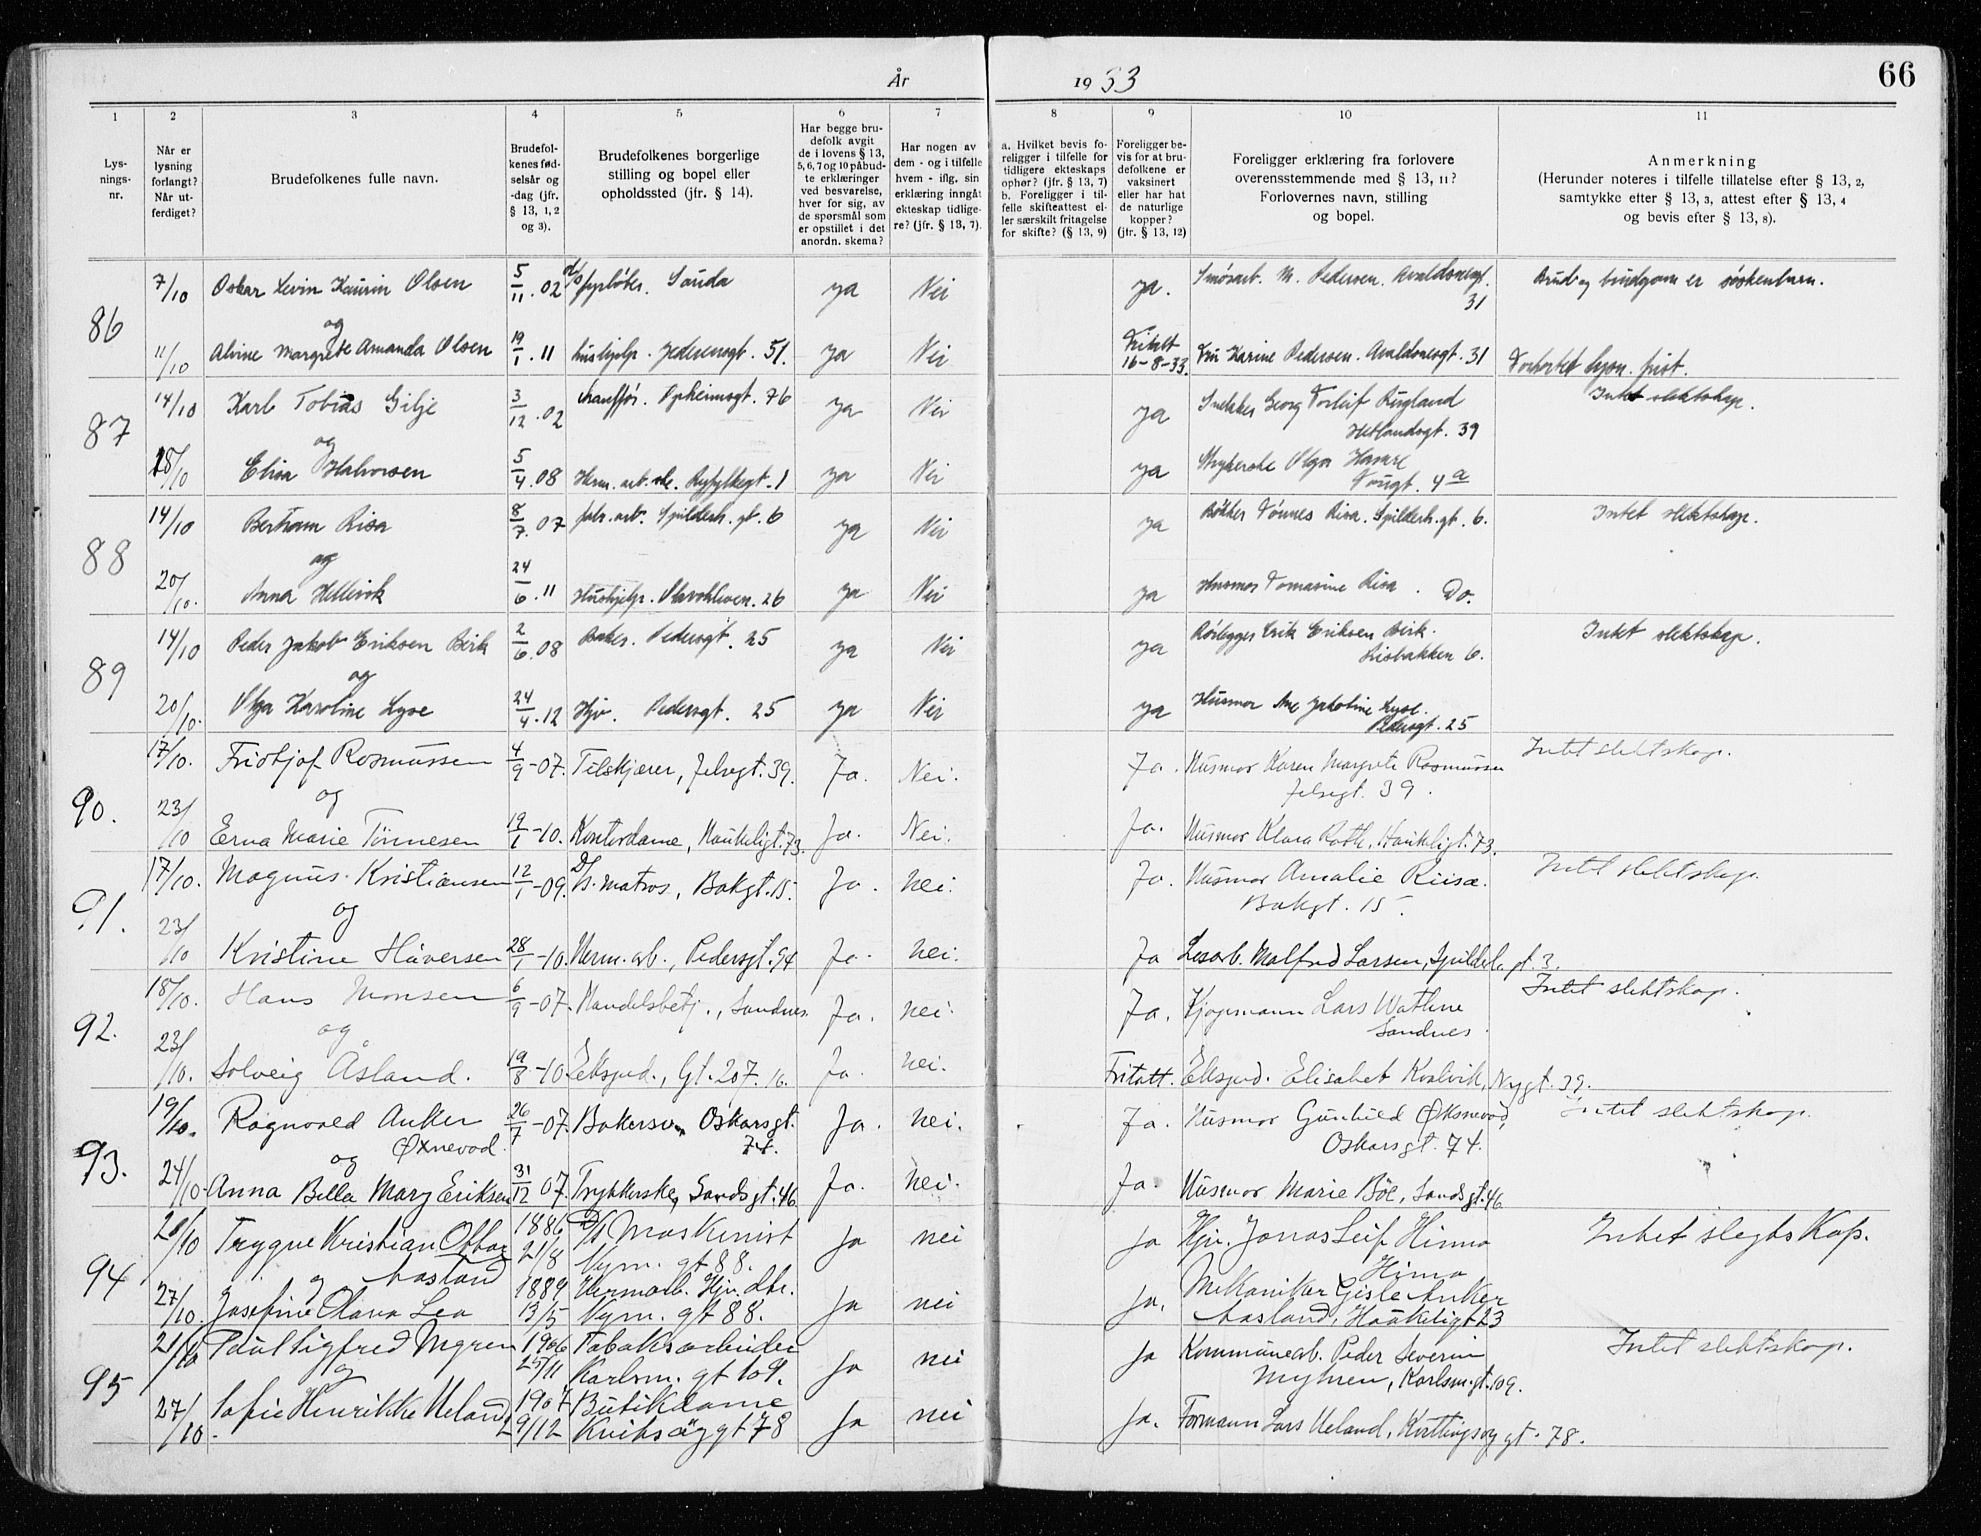 År 1933
66
1 2 3 4 5 6 7 8 9 10 11
Lys-
nings-
nr.
Når er
lysning
forlangt?
Når ut-
ferdiget?
Brudefolkenes fulle navn.
Brudefol-
kenes fød-
selsår og
-dag (jfr.
§ 13, 1, 2
og 3).
Brudefolkenes borgerlige
stilling og bopel eller
opholdssted (jfr. § 14).
Har begge bru-
defolk avgit
de i lovens § 13,
5, 6, 7 og 10 påbud-
te erklæringer
ved besvarelse,
hver for sig, av
de spørsmål som
er opstillet i det
anordn. skema?
Har nogen av
dem - og i tilfelle
hvem - iflg. sin
erklæring inngåt
ekteskap tidlige-
re? (jfr. § 13, 7).
a. Hvilket bevis fo-
religger i tilfelle for
tidligere ekteskaps
ophør? (jfr. § 13, 7)
b. Foreligger i til-
felle skifteattest el-
ler særskilt fritagelse
for skifte? (§ 13, 9)
Foreligger be-
vis for at bru-
defolkene er
vaksinert
eller har hat
de naturlige
kopper?
(jfr. § 13, 12)
Foreligger erklæring fra forlovere
overensstemmende med § 13, 11?
Forlovernes navn, stilling
og bopel.
Anmerkning
(Herunder noteres i tilfelle tillatelse efter § 13, 2,
samtykke efter § 13, 3, attest efter § 13, 4
og bevis efter § 13, 8).
86
7/10 Oskar Levin Kaurin Olsen 5/11. 02 d/s fyrbøter. Sauda ya Nei ya. Smørarb. M. Pedersen. Avaldsnesgt. 31 Brud og brudgom er søskenbarn.
og
11/10 Alvine Margrete Amanda Olsen 19/1. 11 hushjelp. Jederensgt. 51. ya Nei Fritatt 16-8-33. Fru Karine Pedersen. Avaldsnesgt. 31 Forkortet lysn. frist.
87
14/10 Karl Tobias Gilje 3/12. 02 chauffør. Opheimsgt. 76 ya Nei ya Snekker Georg Torleif Rugland Hetlandsgt. 39 Intet slektskap.
og
18/10 Elisa Halvorsen 5/4. 08 Herm. arb.ske. Ryfylkegt. 1 ya Nei ya Strykerske Olga Tougt. 4a
88
14/10 Bertram Risa 8/7. 07 fabr. arb. Spilderh.gt. 6 ya Nei ya Bøkker Tønnes Risa. Spilderh.gt. 6. Intet slektskap.
og
20/10. Anna Hellevik 24/6. 11 Hushjelp. 26 ya Nei ya Husmor Tomasine Risa. Do.
89
14/10 Peder Jakob Eriksen Birk 2/6. 08 Baker. Pedersgt. 25 ya Nei ya Rørlegger Erik Eriksen Birk. Risbakken 6. Intet slektskap.
og
20/10. Olga Karoline Lyse 24/4. 12 Hjv. Pedersgt. 25 ya Nei ya Husmor Ane Jakobine Lyse. Pedersgt. 25
90.
17/10. Fridtjof Rasmussen 4/9-07. Tilskjærer, Jelsgt. 39. Ja. Nei. Ja. Husmor Karen Margrete Rasmussen Jelsegt. 39. Intet slektskap.
og
23/10 Erna Marie Tønnesen 19/1-10. Kontordame, Haukeligt. 73. Ja. Nei. Ja. Husmor Klara Roth, Haukeligt. 73.
91.
17/10. Magnus Kristiansen 12/1-09. D/s. matros, Bakgt. 15. Ja. Nei. Ja. Husmor Amalie Riisa. Bakgt. 15. Intet slektskap.
og
23/10 Kristine Håversen 28/1-10. Herm. arb., Pedersgt. 94 Ja. Nei. Ja Losarb. Malfred Larsen, Spilderh. gt. 3.
92.
18/10. Hans Monsen 6/9-07. Handelsbetj., Sandnes. Ja. Nei. Ja. Kjøpmann Lars Wathne Sandnes. Intet slektskap.
og
23/10. Solveig Åsland. 19/8-10 Eksped., Gt. 207. 16. Ja. Nei. Fritatt. Eksped. Elisabet Kvalvik, Nygt. 39.
93.
19/10. Ragnvald Anker Øxnevad. 26/7-07. Bakersv. Oskarsgt. 74. Ja. Nei. Ja. Husmor Gunhild Øksnevad, Oskarsgt. 74. Intet slektskap.
og
24/10. Anna Bella Mary Eriksen 31/12 07. Trykkerske, Sandsgt. 46 Ja. Nei. Ja. Husmor Marie Bøe, Sandsgt. 46
94
20/10 Trygve Kristian Ottar Aasland 1886 21/8 D/s Maskinist Nym. gt 88. Ja nei Ja Hjv. Jonas Leif Hinna Hinna Intet slegtskap.
og
27/10. Josefine Olava Lea 1889 13/5 Hermarb. Hjv. dtr. Nym. gt 88. Ja nei Ja. Mekaniker Gisle Anker Aasland, Haukeligt 23
95
21/10 Paul Sigfred Mgren 1906 25/11 Tabaksarbeider Karlsm. gt 109. Ja nei Ja Kommunearb. Peder Severin Myhren, Karlsm.gt. 109. Intet slektskap.
og
27/10. Sofie Henrikke Ueland 1907 29/12 Butikdame gt 78 Ja nei Ja. Formann Lars Ueland, gt. 78.